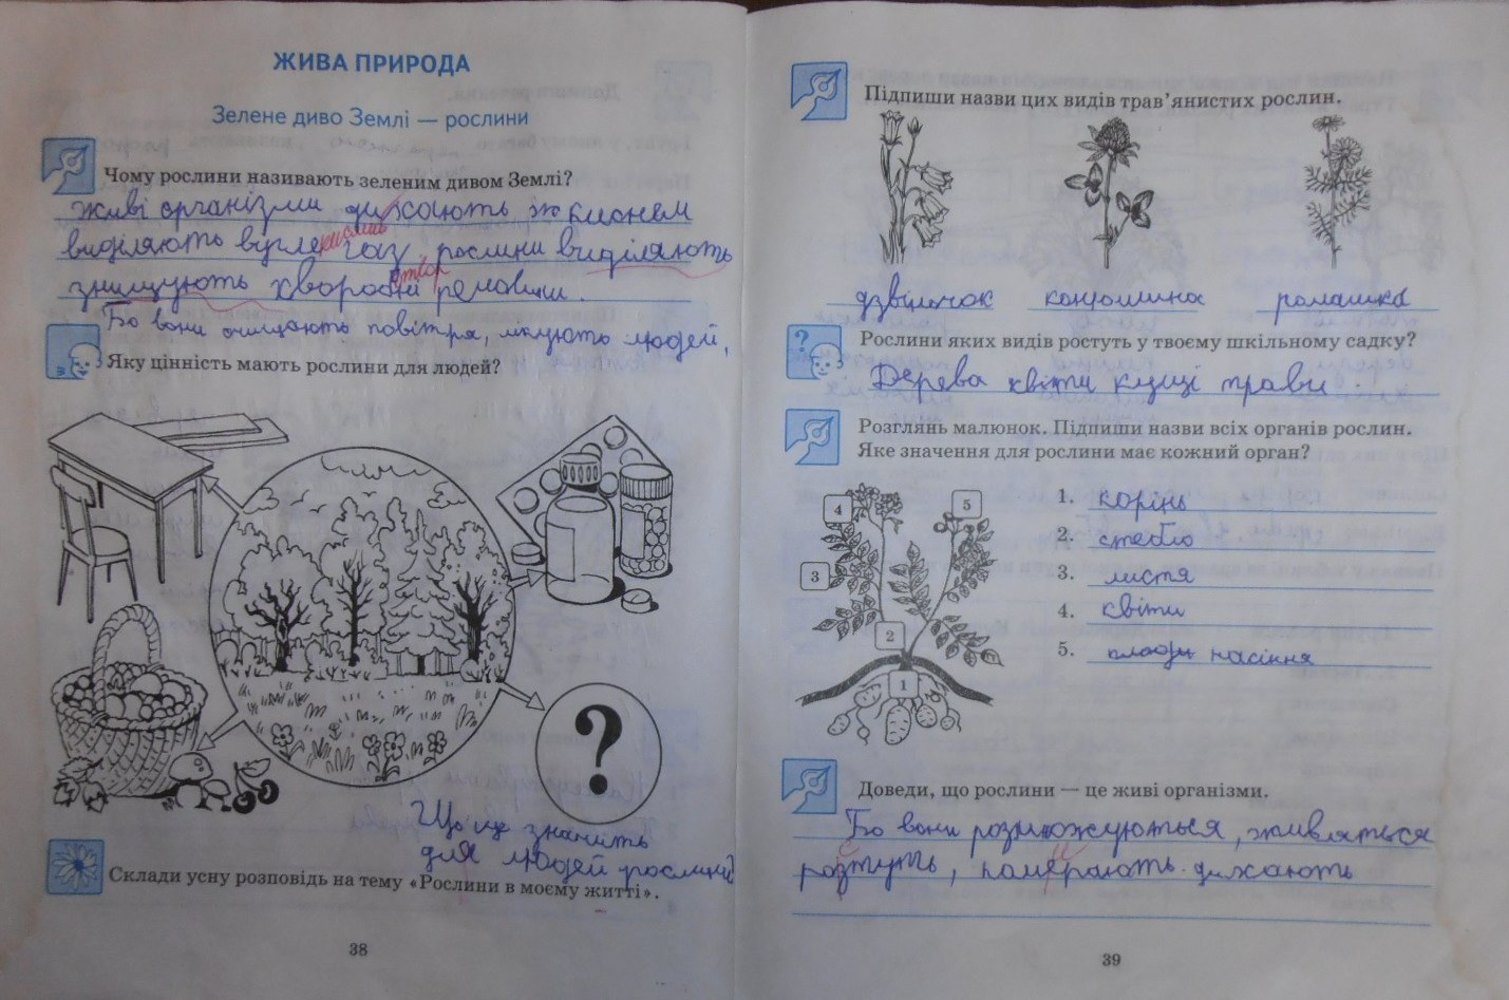 ЖИВА ПРИРОДА
Зелене диво Землі — рослини
Чому рослини називають зеленим дивом Землі?
живі організми дихають
виділяють вугле газ рослини виділяють
кисень
знищують хвороби
Бо вони очищають повітря, лікують людей,
Яку цінність мають рослини для людей?
?
Що це значить
для людей рослини?
Склади усну розповідь на тему «Рослини в моєму житті».
38
Підпиши назви цих видів трав’янистих рослин.
дзвіночок конюшина ромашка
Рослини яких видів ростуть у твоєму шкільному садку?
Дерева квіти кущі трави.
Розглянь малюнок. Підпиши назви всіх органів рослин.
Яке значення для рослини має кожний орган?
4 5
3
2
1
1. корінь
2. стебло
3. листя
4. квіти
5. плоди насіння
Доведи, що рослини — це живі організми.
Бо вони розмножуються, живляться
ростуть, помирають. дихають
39